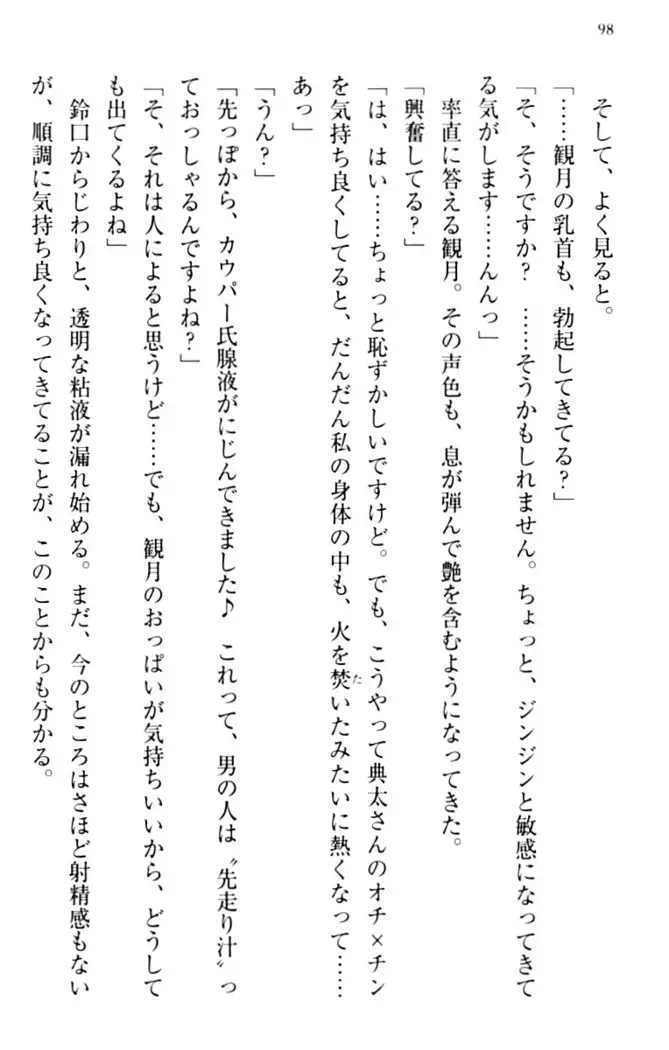 98
そして、よく見ると。
「……観月の乳首も、勃起してきてる？」
「そ、そうですか？　……そうかもしれません。ちょっと、ジンジンと敏感になってきて
る気がします……んんっ」
率直に答える観月。その声色も、息が弾んで艶を含むようになってきた。
「興奮してる？」
「は、はい……ちょっと恥ずかしいですけど。でも、こうやって典太さんのオチ×チン
を気持ち良くしてると、だんだん私の身体の中も、火を焚いたみたいに熱くなって……
あっ」
「うん？」
「先っぽから、カウパー氏腺液がにじんできました♪　これって、男の人は〝先走り汁〟っ
ておっしゃるんですよね？」
「そ、それは人によると思うけど……でも、観月のおっぱいが気持ちいいから、どうして
も出てくるよね」
鈴口からじわりと、透明な粘液が漏れ始める。まだ、今のところはさほど射精感もない
が、順調に気持ち良くなってきてることが、このことからも分かる。